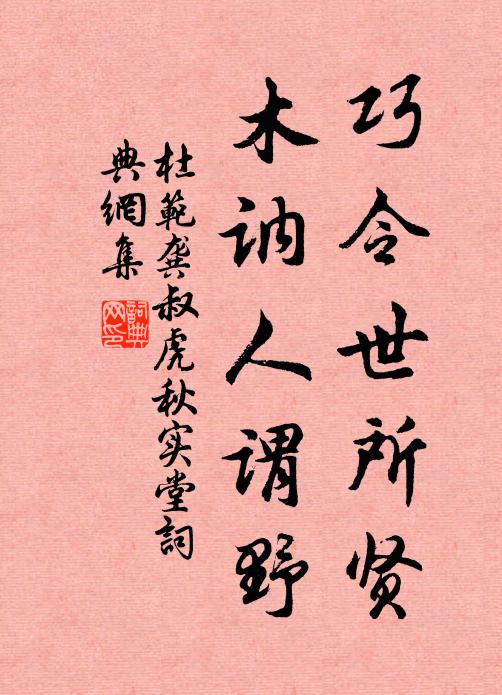 巧令世所贤
木讷人谓野
杜範龚叔虎秋实堂詞
典網集
詞典网印